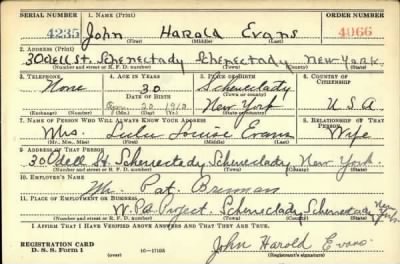 SERIAL NUMBER 1. NAME (Print) ORDER NUMBER
4235 John Harold Evans 4066
(First) (Middle) (Last)
2. ADDRESS (Print)
30 Odell St. Schenectady Schenectady New York
(Number and street or R. F. D. number) (Town) (County) (State)
3. TELEPHONE 4. AGE IN YEARS 5. PLACE OF BIRTH 6. COUNTRY OF CITIZENSHIP
None 30 Schenectady
DATE OF BIRTH (Town or county)
20 1910 New York U S A
(Exchange) (Number) (Mo.) (Day) (Yr.) (State or country)
7. NAME OF PERSON WHO WILL ALWAYS KNOW YOUR ADDRESS 8. RELATIONSHIP OF THAT PERSON
Mrs. Louise Evans Wife
(Mr., Mrs., Miss) (First) (Middle) (Last)
9. ADDRESS OF THAT PERSON
30 Odell St. Schenectady Schenectady New York.
(Number and street or R. F. D. number) (Town) (County) (State)
10. EMPLOYER'S NAME
Mr. Pat. Brennan
11. PLACE OF EMPLOYMENT OR BUSINESS
W.P.A. Project. Schenectady Schenectady New York
(Number and street or R. F. D. number) (Town) (County) (State)
I AFFIRM THAT I HAVE VERIFIED ABOVE ANSWERS AND THAT THEY ARE TRUE.
REGISTRATION CARD
D. S. S. Form 1 (over) 16—17105 John Harold Evans
(Registrant's signature)